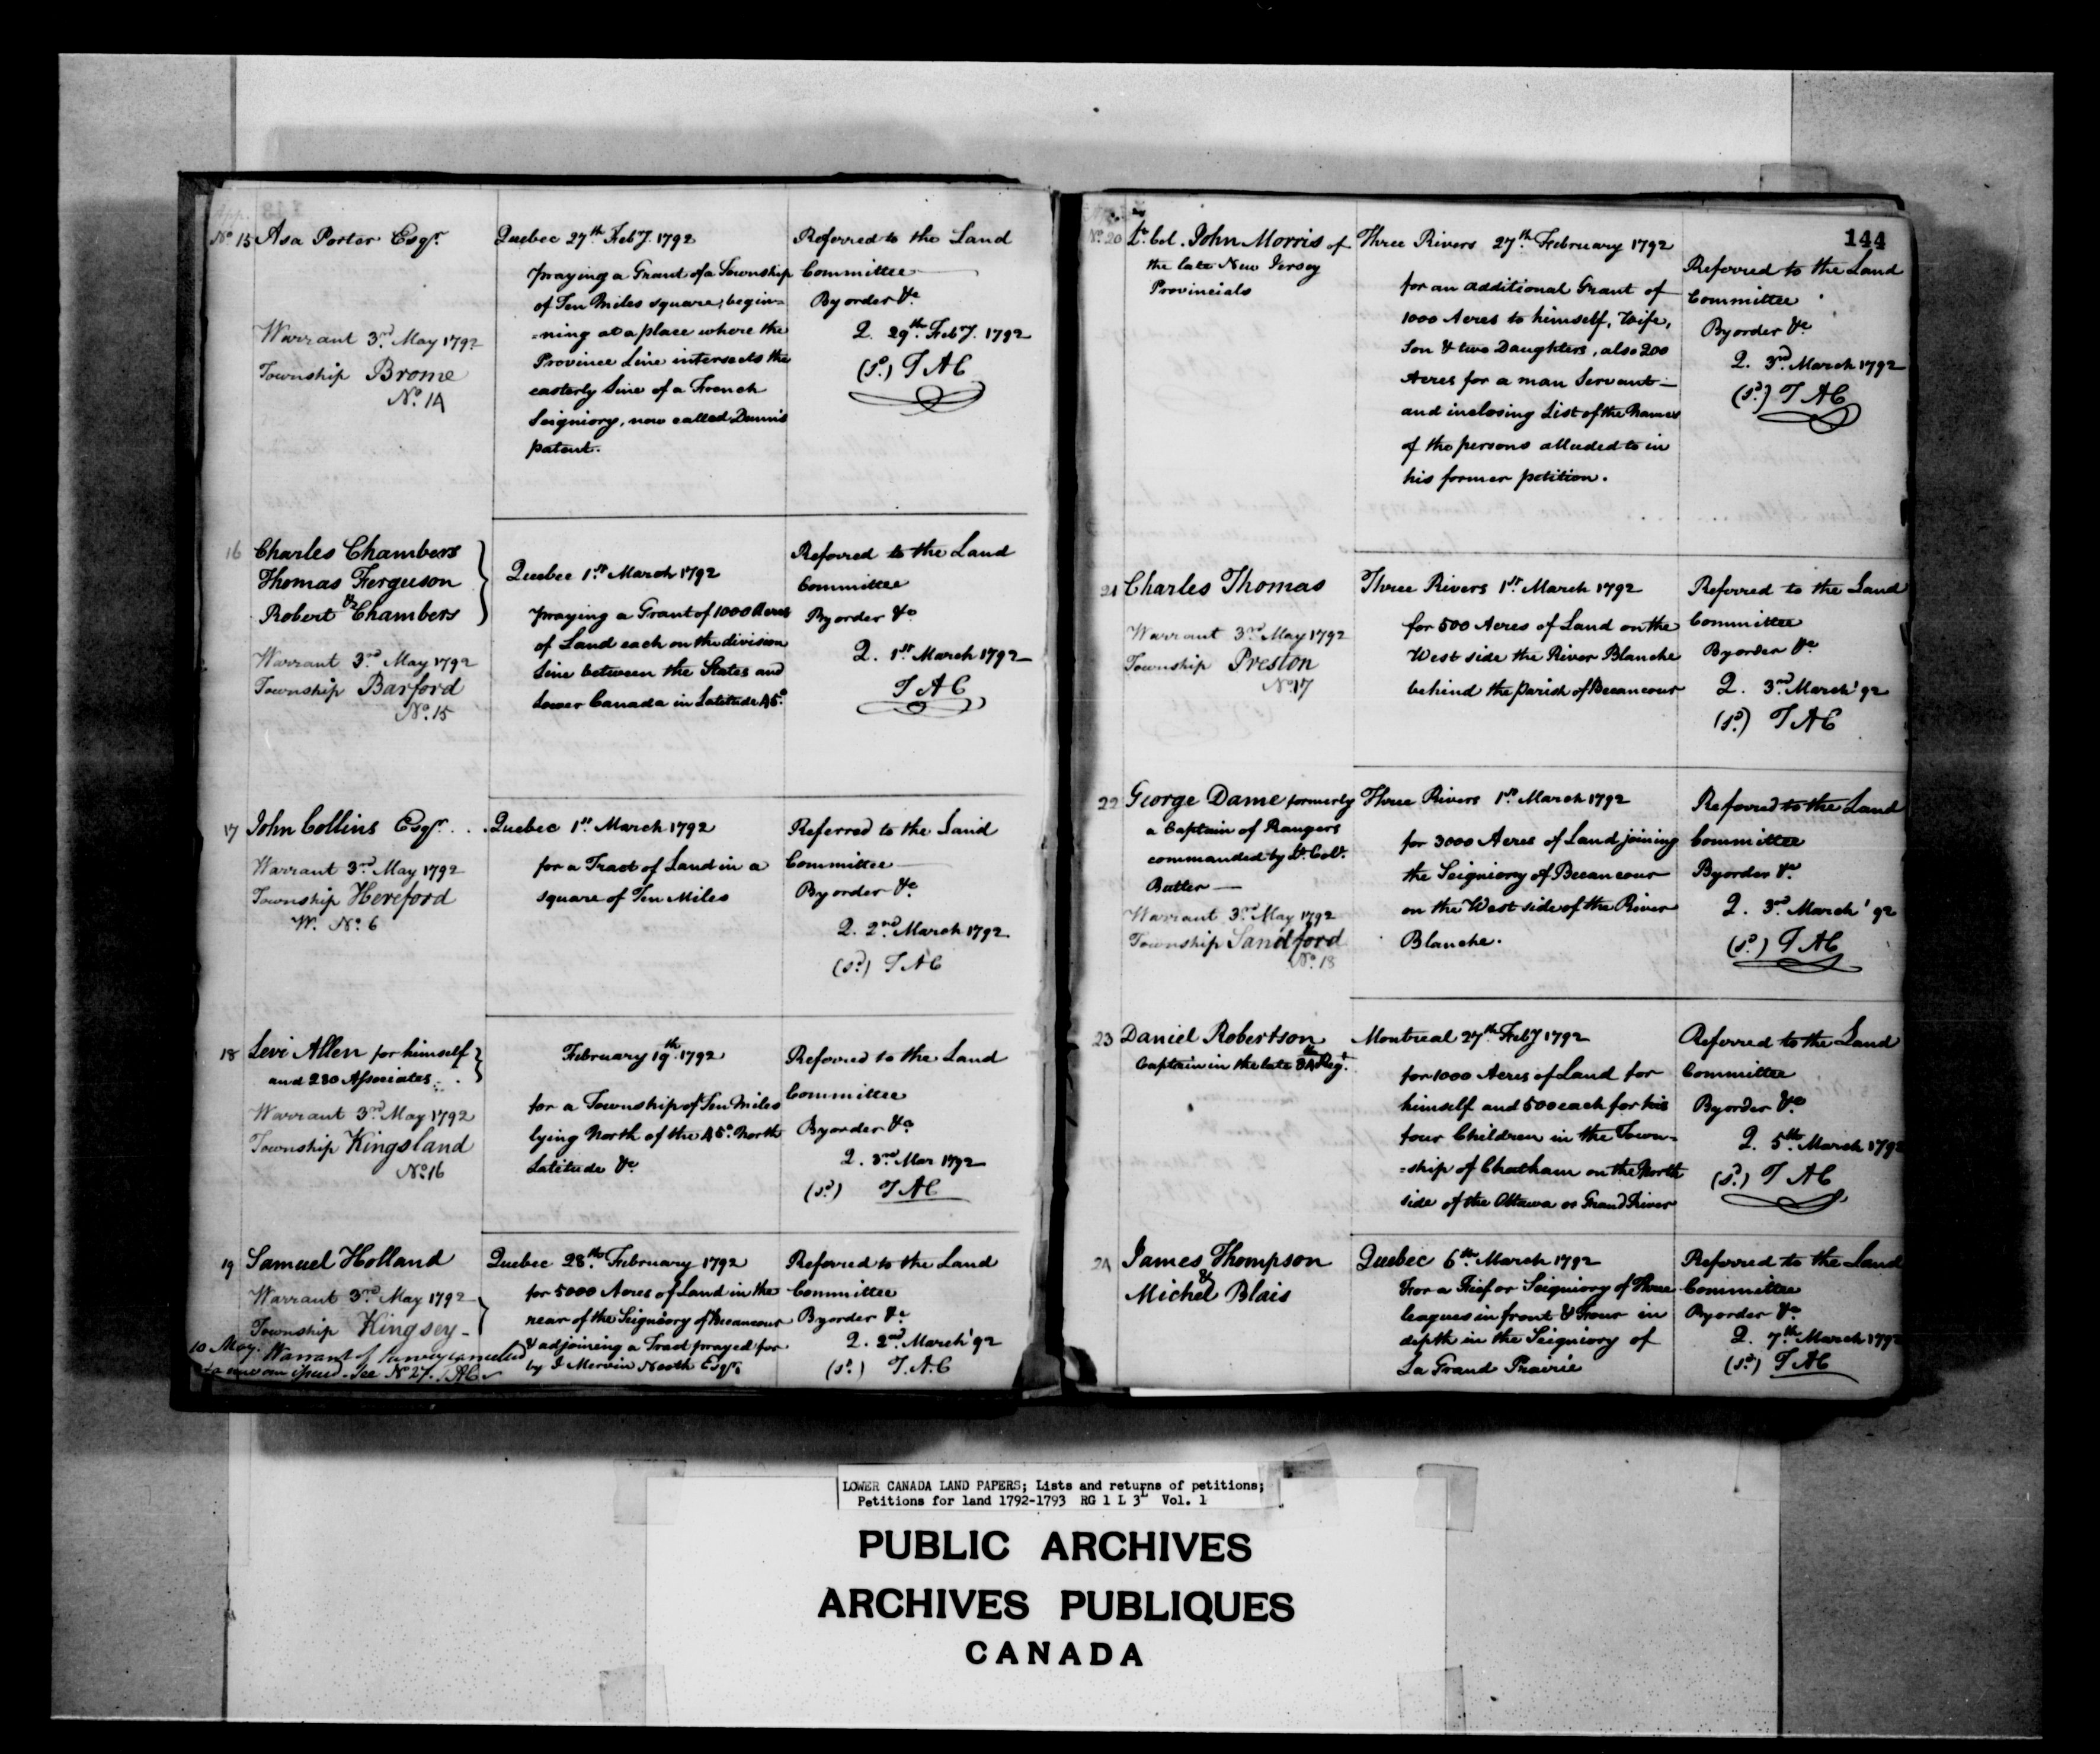 No. 15 Asa Porter Esqr.
Warrant 3rd May 1792
Township Brome
No. 14
Quebec 27th Feby. 1792
praying a Grant of a Township
of Ten Miles square, begin=
=ning at a place where the
Province Line intersects the
easterly Line of a French
Seigniory, now called Dunn's
patent.
Referred to the Land
Committee
By order &c
Q. 29th Feby. 1792
(sd.) T A C
16 Charles Chambers
Thomas Ferguson
&
Robert Chambers
Warrant 3rd May 1792
Township Barford
No. 15
Quebec 1st March 1792
praying a Grant of 1000 Acres
of Land each on the division
Line between the States and
Lower Canada in Latitude 45°
Referred to the Land
Committee
By order &c
Q. 1st March 1792
T A C
17 John Collins Esqr. . .
Warrant 3rd May 1792
Township Hereford
W. No. 6
Quebec 1st March 1792
for a Tract of Land in a
square of Ten Miles
Referred to the Land
Committee
By order &c
Q. 2nd March 1792.
(sd) T A C
18 Levi Allen for himself
and 230 Associates
Warrant 3rd May 1792
Township Kingsland
No. 16
February 19th 1792
for a Township of Ten Miles
lying North of the 45° North
Latitude &c
Referred to the Land
Committee
By order &c
Q. 3rd Mar 1792
(sd) T A C
19 Samuel Holland
Warrant 3rd May 1792
Township Kingsey
10 May. Warrant of Survey cancelled
new one issued. See No. 27. TAC
Quebec 28th February 1792
for 5000 Acres of Land in the
rear of the Seigniory of Becancour
& adjoining a Tract prayed for
by J Mervin Nooth Esqr.
Referred to the Land
Committee
By order &c
Q. 2nd March '92
(sd.) T. A. C
144
No. 20 Lt. Col. John Morris of
the late New Jersey
Provincials
Three Rivers 27th February 1792
for an additional Grant of
1000 Acres to himself, Wife,
Son & two Daughters, also 200
Acres for a man Servant —
and inclosing List of the Names
of the persons alluded to in
his former petition.
Referred to the Land
Committee
By order &c
Q. 3rd March 1792
(sd.) T A C
21 Charles Thomas
Warrant 3rd May 1792
Township Preston
No. 17
Three Rivers 1st March 1792
for 500 Acres of Land on the
West side the River Blanche
behind the parish of Becancour
Referred to the Land
Committee
By order &c
Q. 3rd March '92
(sd) T A C
22 George Dame formerly
a Captain of Rangers
commanded by Lt. Col.
Butler —
Warrant 3rd May 1792
Township Sandford
No. 18
Three Rivers 1st March 1792
for 3000 Acres of Land joining
the Seigniory of Becancour
on the West side of the River
Blanche.
Referred to the Land
Committee
By order &c
Q. 3rd March '92
(sd) T A C
23 Daniel Robertson
Captain in the late 84th Regt.
Montreal 27th Feby 1792
for 1000 Acres of Land for
himself and 500 each for his
four Children in the Town=
=ship of Chatham on the North
side of the Ottawa or Grand River
Referred to the Land
Committee
By order &c
Q. 5th March 1792
(sd.) T A C
24 James Thompson
&
Michel Blais
Quebec 6th March 1792
For a Fief or Seigniory of Three
leagues in front & Four in
depth in the Seigniory of
La Grand Prairie
Referred to the Land
Committee
By order &c
Q. 7th March 1792
(sd) T A C
LOWER CANADA LAND PAPERS; Lists and returns of petitions;
Petitions for land 1792-1793 RG 1 L 3L Vol. 1
PUBLIC ARCHIVES
ARCHIVES PUBLIQUES
CANADA